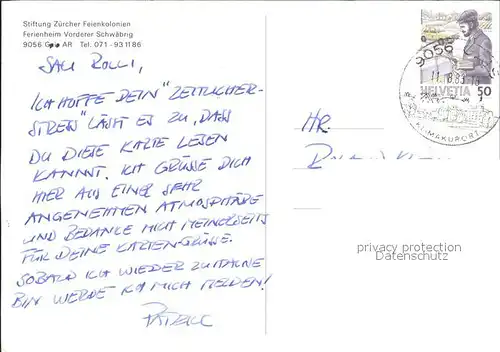 Stiftung Zürcher Feienkolonien
Ferienheim Vorderer Schwäbrig
9056 Gais AR Tel. 071 - 93 11 86
SALI ROLLI,
ICH HOFFE DEIN "ZEITLICHER-
STRESS" LÄSST ES ZU, DASS
DU DIESE KARTE LESEN
KANNST. ICH GRÜSSE DICH
HIER AUS EINER SEHR
ANGENEHMEN ATMOSPHÄRE
UND BEDANKE MICH MEINERSEITS
FÜR DEINE KARTENGRÜSSE.
SOBALD ICH WIEDER ZUHAUSE
BIN WERDE ICH MICH MELDEN!
HR.
9056
HELVETIA 50
KLIMAKURORT
privacy protection
Datenschutz